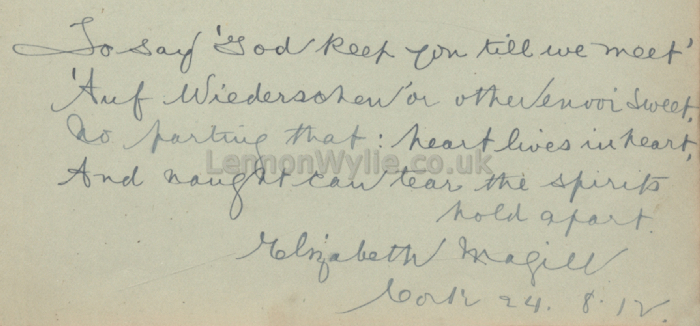 To say 'God keep you till we meet'
'Auf Wiedersehen' or other envoi sweet,
No parting that: heart lives in heart,
And naught can tear the spirits
hold apart.
Elizabeth Magill
Cork 24. 8. 12.
LennonWylie.co.uk